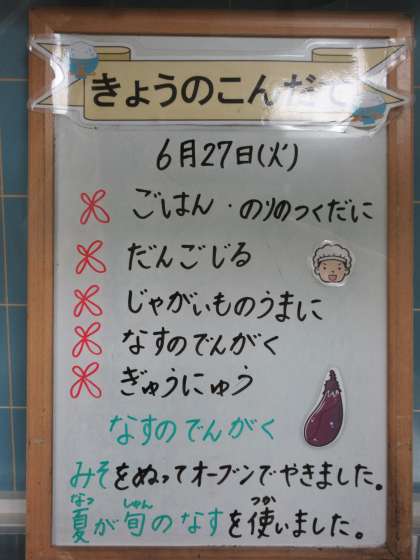 きょうのこんだて
6月27日(火)
ごはん・のりのつくだに
だんごじる
じゃがいものうまに
なすのでんがく
ぎゅうにゅう
なすのでんがく
みそをぬってオーブンでやきました。
なつ しゅん つか
夏が旬のなすを使いました。